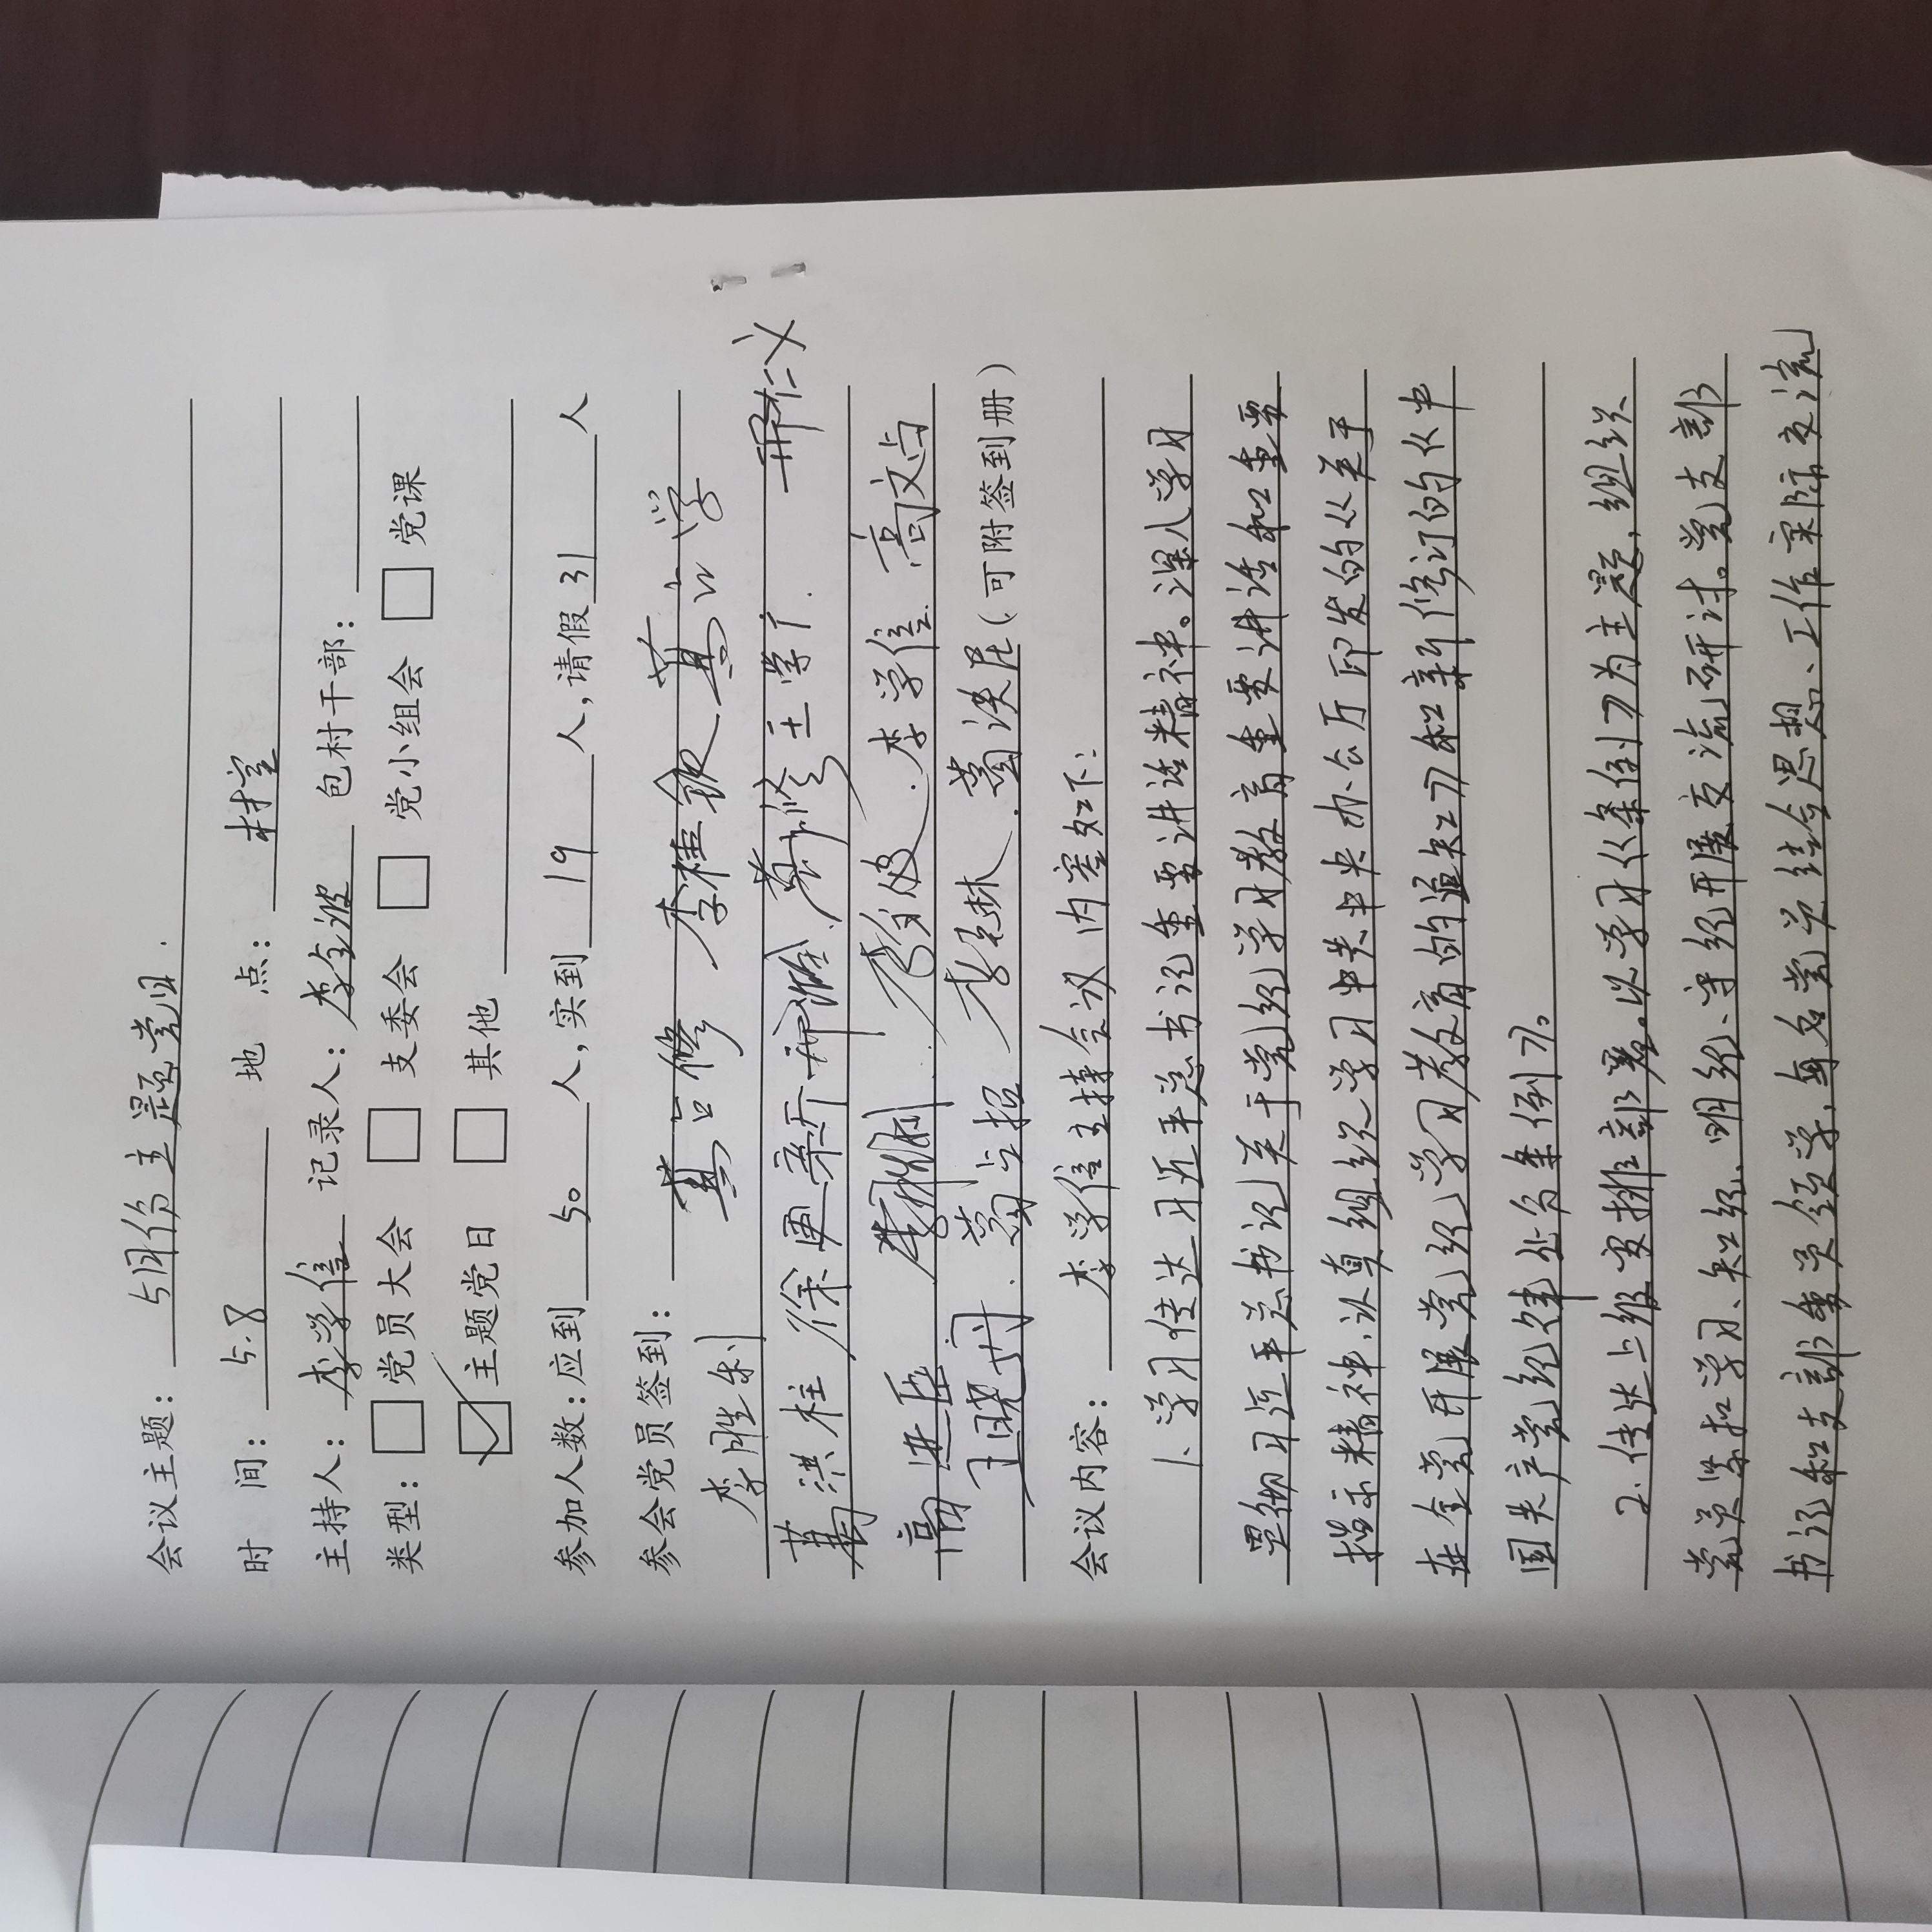 会议主题：5月份主题党日.
时 间：5.8 地 点：村室
主持人：李学信 记录人：李金波 包村干部：
类型：□党员大会 □支委会 □党小组会 □党课
☑主题党日 □其他
参加人数：应到50人，实到19人，请假31人
参会党员签到：葛占修 李桂银 葛占学
李胜利
葛洪柱 徐更新 邢 葛修 王学 邢仁义
高进 李学信 高文占
王晓 葛占 李 葛（可附签到册）
会议内容：李学信主持会议内容如下：
1、学习传达习近平总书记重要讲话精神。深入学习
贯彻习近平总书记关于党纪学习教育重要讲话和重要
指示精神，认真组织学习中共中央办公厅印发的《关于
在全党开展党纪学习教育的通知》和新修订的《中
国共产党纪律处分条例》。
2.传达上级安排部署。以学习《条例》为主题，组织
党员学习、知纪、明纪、守纪开展交流研讨。党支部
书记和支部委员领学，每名党员结合思想、工作实际交流